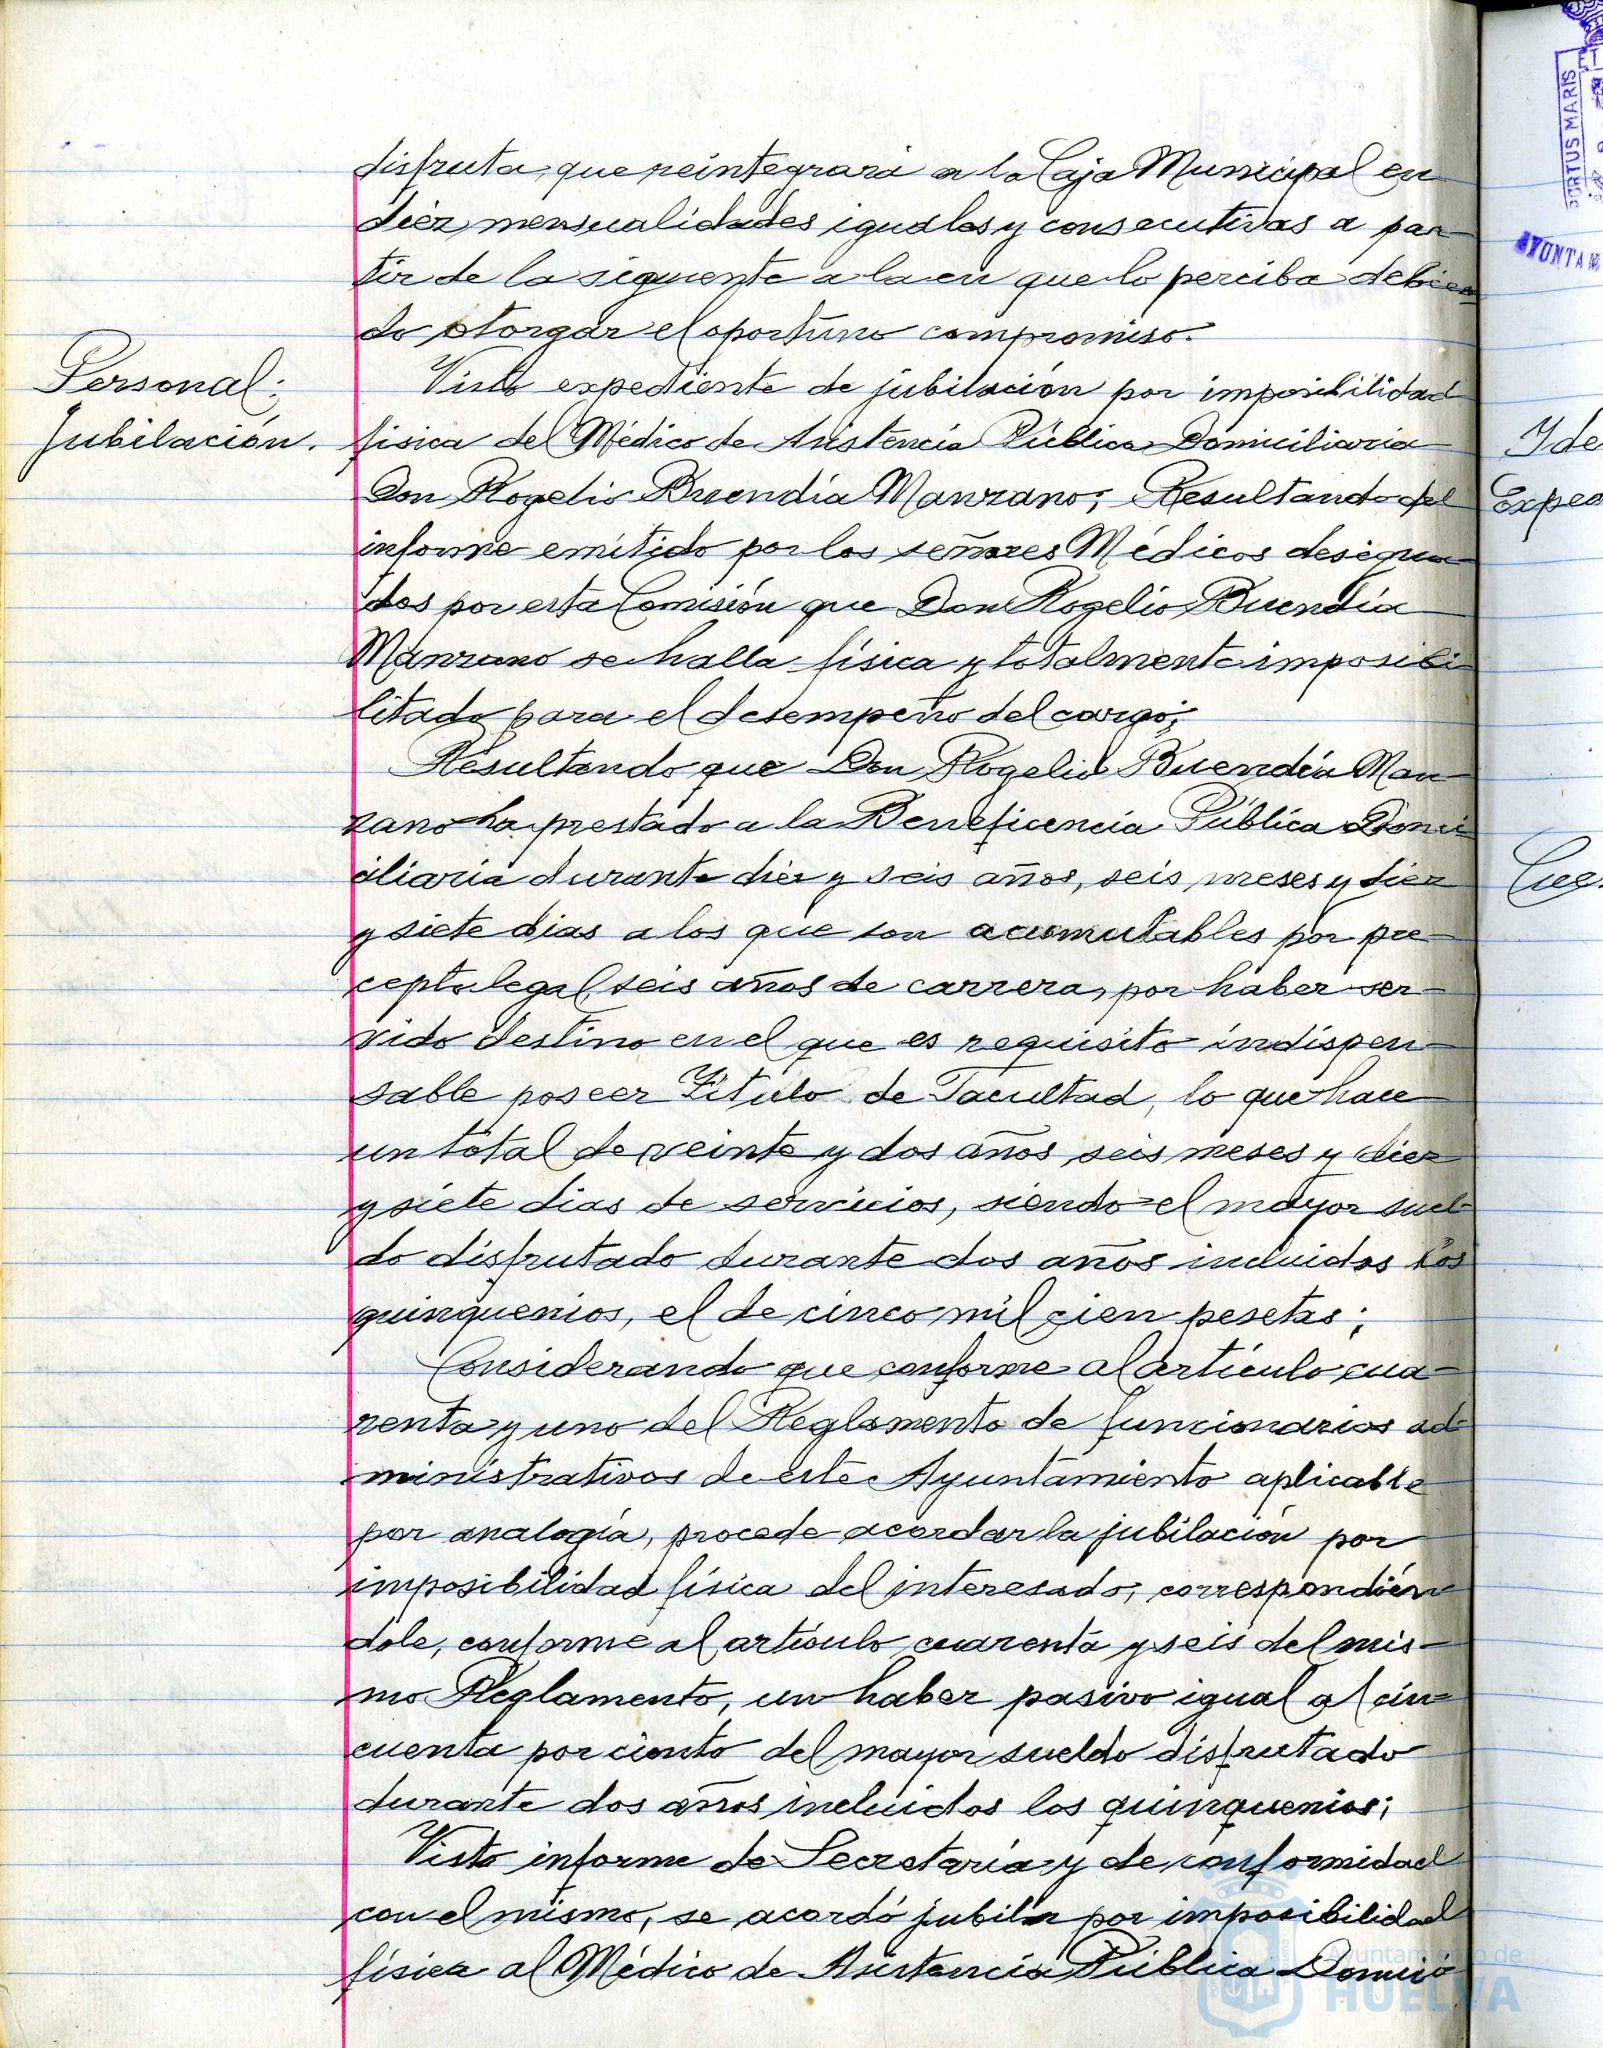 disfruta, que reintegrará a la Caja Municipal en
diez mensualidades iguales y consecutivas a par-
tir de la siguiente a la en que lo perciba debien
do otorgar el oportuno compromiso.
Personal:
Jubilación.
Visto expediente de jubilación por imposibilidad
física del Médico de Asistencia Pública Domiciliaria
Don Rogelio Buendía Manzano; Resultando del
informe emitido por los señores Médicos designa-
dos por esta Comisión que Don Rogelio Buendía
Manzano se halla física y totalmente imposibi
litado para el desempeño del cargo;
Resultando que Don Rogelio Buendía Man
zano ha prestado a la Beneficencia Pública Domi
ciliaria durante diez y seis años, seis meses y diez
y siete dias a los que son acumulables por pre-
cepto legal seis años de carrera, por haber ser-
vido destino en el que es requisito indispen-
sable poseer Título de Facultad, lo que hace
un total de veinte y dos años seis meses y diez
y siete dias de servicios, siendo el mayor suel-
do disfrutado durante dos años incluidos los
quinquenios, el de cinco mil cien pesetas;
Considerando que conforme al artículo cua-
renta y uno del Reglamento de funcionarios ad-
ministrativos de este Ayuntamiento aplicable
por analogía, procede acordar la jubilación por
imposibilidad física del interesado, correspondién
dole, conforme al artículo cuarenta y seis del mis-
mo Reglamento, un haber pasivo igual al cin-
cuenta por ciento del mayor sueldo disfrutado
durante dos años incluidos los quinquenios;
Visto informe de Secretaría y de conformidad
con el mismo, se acordó jubilar por imposibilidad
física al Médico de Asistencia Pública Domici
PORTUS MARIS
AYUNTAM
Ide
Exped
Ayuntamiento de
HUELVA